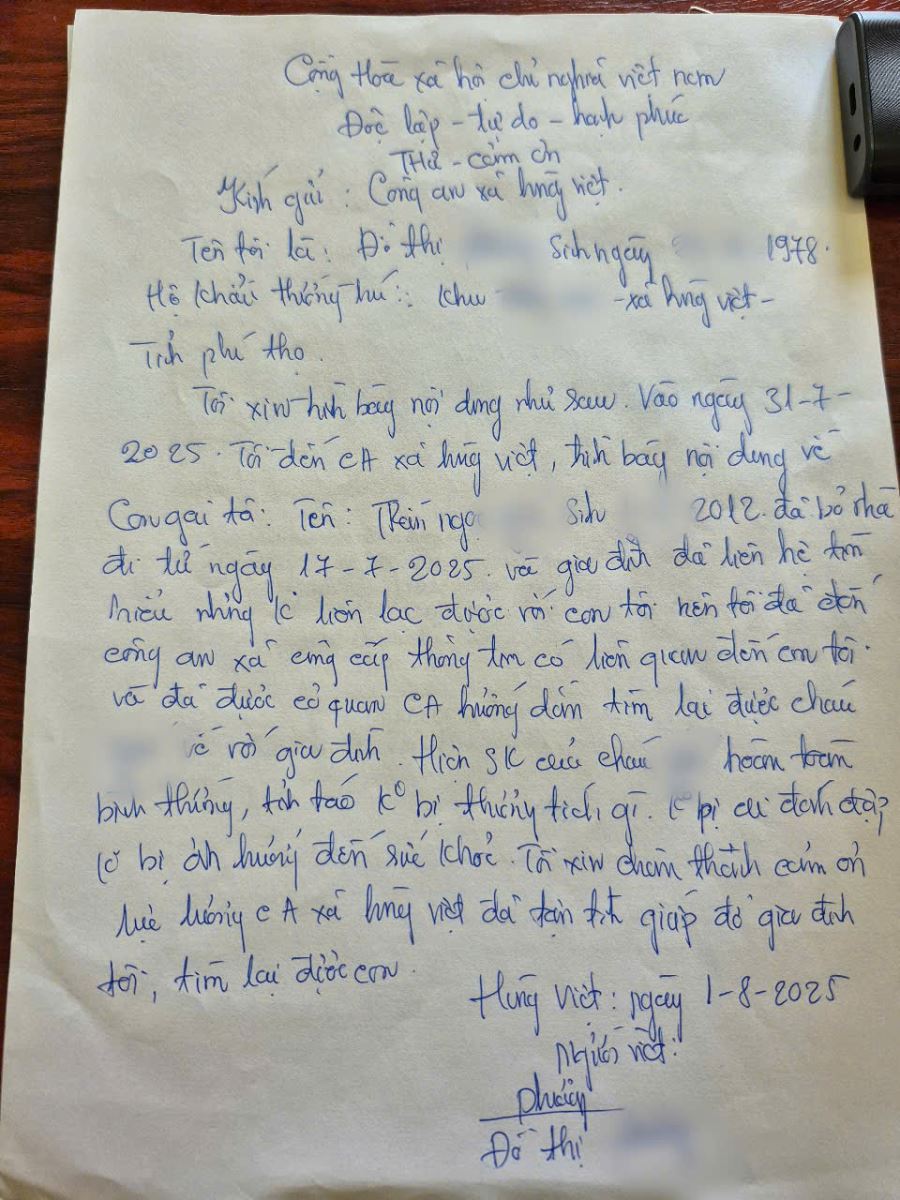 Cộng Hoà xã hội chủ nghĩa việt nam
Độc lập - tự do - hạnh phúc
THƯ - cảm ơn
Kính gửi : Công an xã hùng việt.
Tên tôi là : Đỗ thị Sinh ngày 1978.
Hộ khẩu thường trú : khu - xã hùng việt -
Tỉnh phú thọ.
Tôi xin trình bày nội dung như sau. Vào ngày 31-7-
2025. Tôi đến CA xã hùng việt, trình bày nội dung về
Con gái tôi : Tên : Sinh 2012. đã bỏ nhà
đi từ ngày 17-7-2025. và gia đình đã liên hệ tìm
hiểu nhưng k liên lạc được với con tôi nên tôi đã đến
công an xã cung cấp thông tin có liên quan đến con tôi.
và đã được cơ quan CA hướng dẫn tìm lại được cháu
về với gia đình. Hiện SK của cháu hoàn toàn
bình thường, tỉnh táo k° bị thương tích gì. k bị ai đánh đập,
k bị ảnh hưởng đến sức khoẻ. Tôi xin chân thành cảm ơn
lực lượng CA xã hùng việt đã tận tình giúp đỡ gia đình
tôi, tìm lại được con.
Hùng Việt : ngày 1-8-2025
Người viết :
Đỗ thị